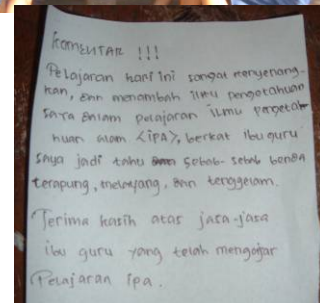 Komentar !!!
Pelajaran hari ini sangat menyenang-
kan, dan menambah ilmu pengetahuan
saya dalam pelajaran ilmu pengetah
huan alam <ipa>, berkat ibu guru
saya jadi tahu sebab-sebab benda
terapung, melayang, dan tenggelam.
Terima kasih atas jasa-jasa
ibu guru yang telah mengajar
Pelajaran ipa.